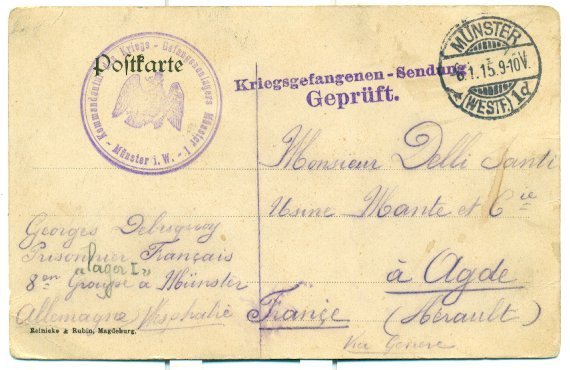 Postkarte
Kommandantur des Kriegs-Gefangenenlagers Münster
- Münster i. W. - 1
Kriegsgefangenen-Sendung.
Geprüft.
MÜNSTER
6.1.15.9-10V.
(WESTF.) 1d
Monsieur Delli Santi
Usine Mante et Cie
à Agde
France (Hérault)
Via Genève
Georges
Prisonnier Français
"Lager I"
8en Groupe à Münster
Allemagne Wesphalie
Reinicke & Rubin, Magdeburg.